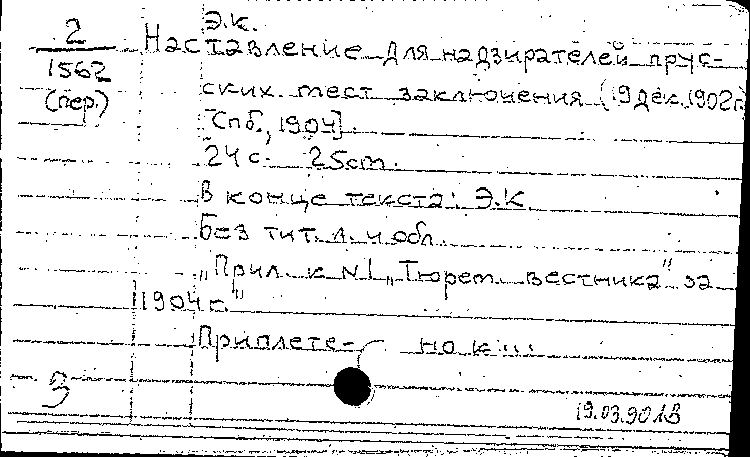 Э.К.
2 Наставление для надзирателей прус-
1562 ских мест заключения (19 дек. 1902 г.)
(пер.) Спб., 1904].
24 с. 25 см.
В конце текста: Э.К.
Без тит. л. и обл.
„Прил. к №1 „Тюрем. вестника" за
1904 г."
Приплете- но к...
19.03.90